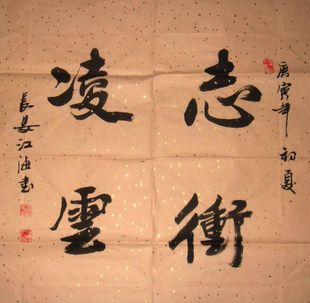 庚寅年初夏
志衝
凌雲
長安江海書